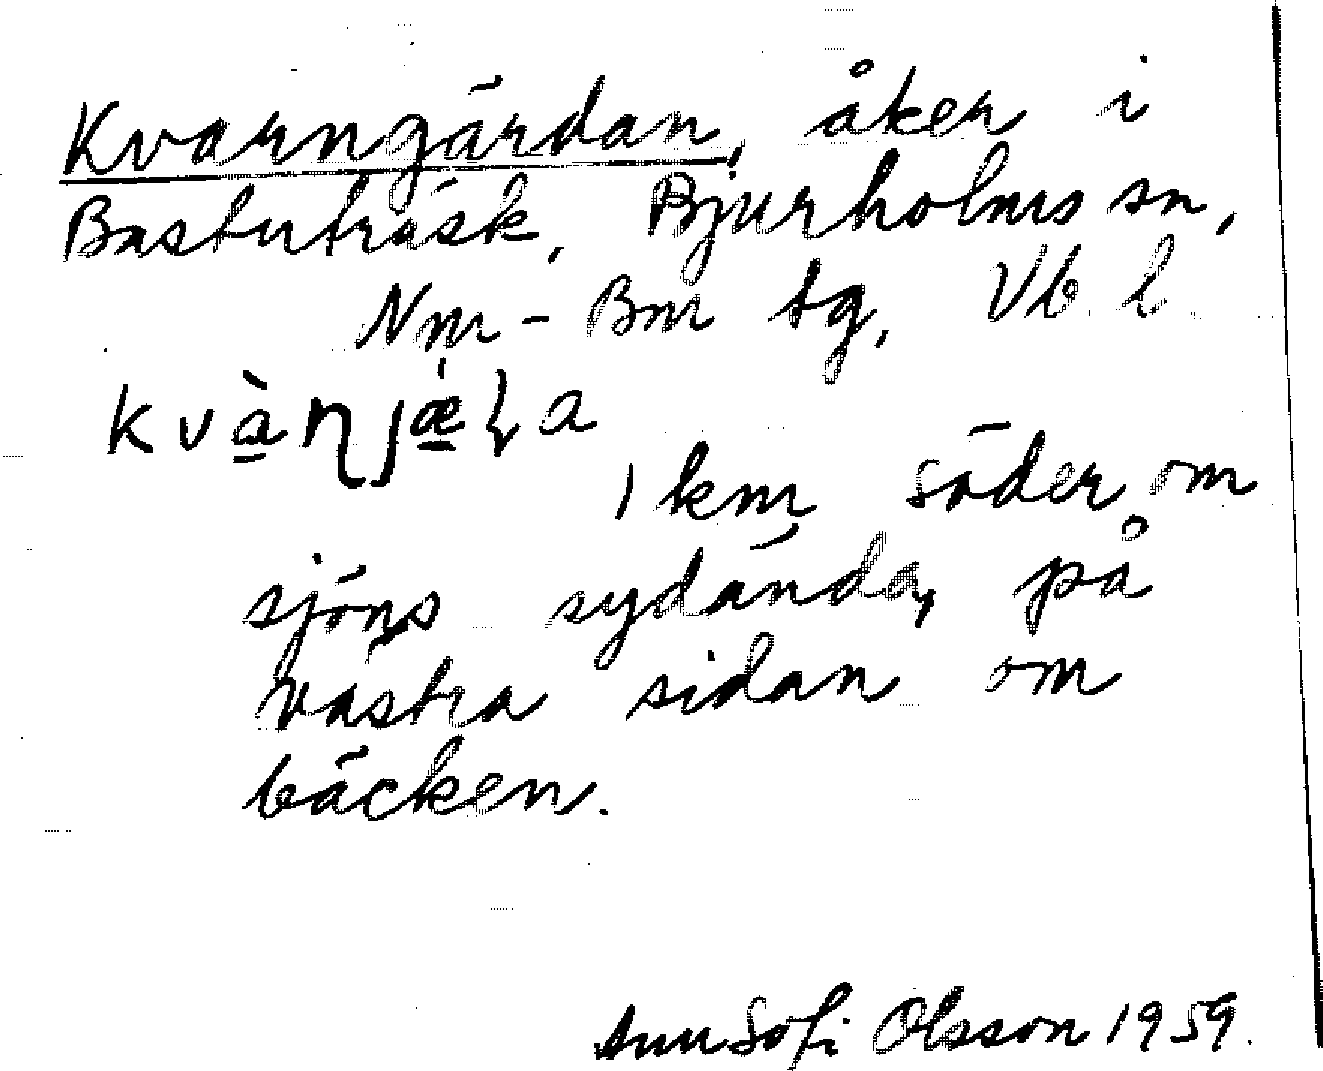 Kvarngärdan, åker i
Basturträsk, Bjurholms sn,
Nm - Bm tg, Vb l
1 km söder om
sjöns sydända, på
västra sidan om
bäcken.
Ann Sofi Olsson 1959.